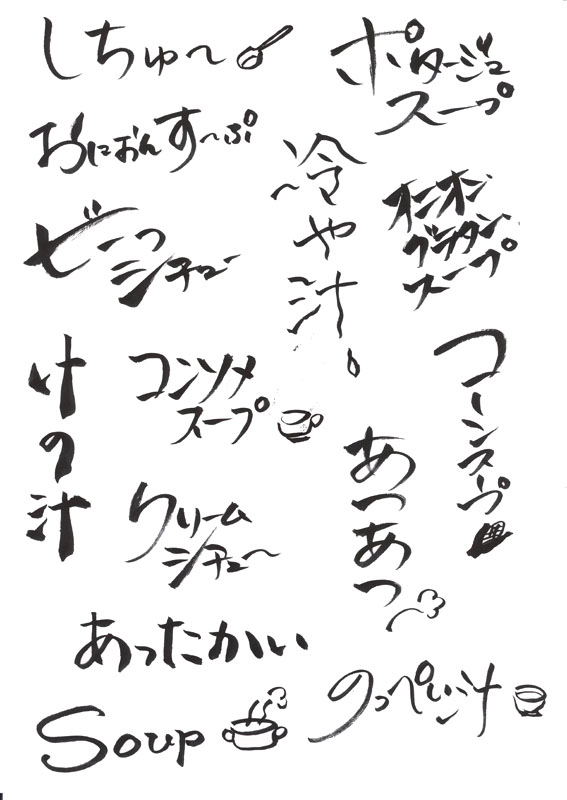 しちゅ〜
ポタージュ
スープ
おにおんす〜ぷ
冷や汁
オニオン
グラタン
スープ
ビーフ
シチュー
けの汁
コンソメ
スープ
コーンスープ
あつあつ
クリーム
シチュ〜
あったかい
のっぺい汁
Soup